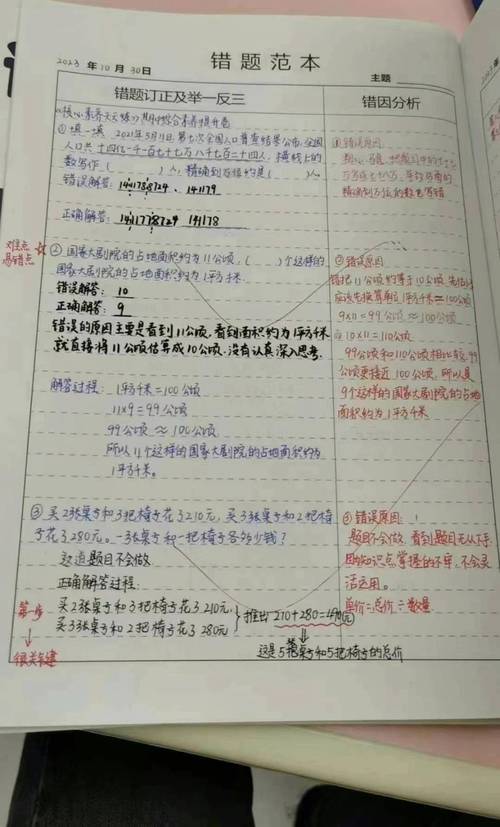 错题范本
2023 年 10 月 30 日
主题
错题订正及举一反三
错因分析
期中综合素养提升卷
① 填一填 2021年5月11日第七次全国人口普查结果公布,全国
人口共十四亿一千一百七十七万八千七百二十四人,横线上的
数写作( )人,精确到万位约是( )人
错误解答: 141179
正确解答: 1411778724 141178
① 错误原因:
难点
易错点
② 国家大剧院的占地面积约为11公顷,( )个这样的
国家大剧院的占地面积约为1平方千米。
错误解答: 10
正确解答: 9
错误的原因主要是看到11公顷,看到面积约为1平方千米
就直接将11公顷估算成10公顷,没有认真深入思考。
解答过程: 1平方千米=100公顷
11×9=99公顷
99公顷≈100公顷
所以11个这样的国家大剧院的占地面积约为
1平方千米。
② 错误原因
错把11公顷约等于10公顷
应该先换算到1平方千米=100公顷
9×11=99公顷≈100公顷
10×11=110公顷
99公顷和110公顷相比较,99
公顷更接近100公顷,所以是
9个这样的国家大剧院的占地
面积约为1平方千米
③ 买2张桌子和3把椅子花了210元,买3张桌子和2把椅
子花了280元。一张桌子和一把椅子各多少钱?
这道题目不会做
正确解答过程:
第一步
很关键
买2张桌子和3把椅子花了210元
买3张桌子和2把椅子花了280元
推出 210+280=490元
这是5张桌子和5把椅子的总价
③ 错误原因:
题目不会做,看到题目无从下手
知识点掌握的不牢,不会灵
活运用。
单价=总价÷数量